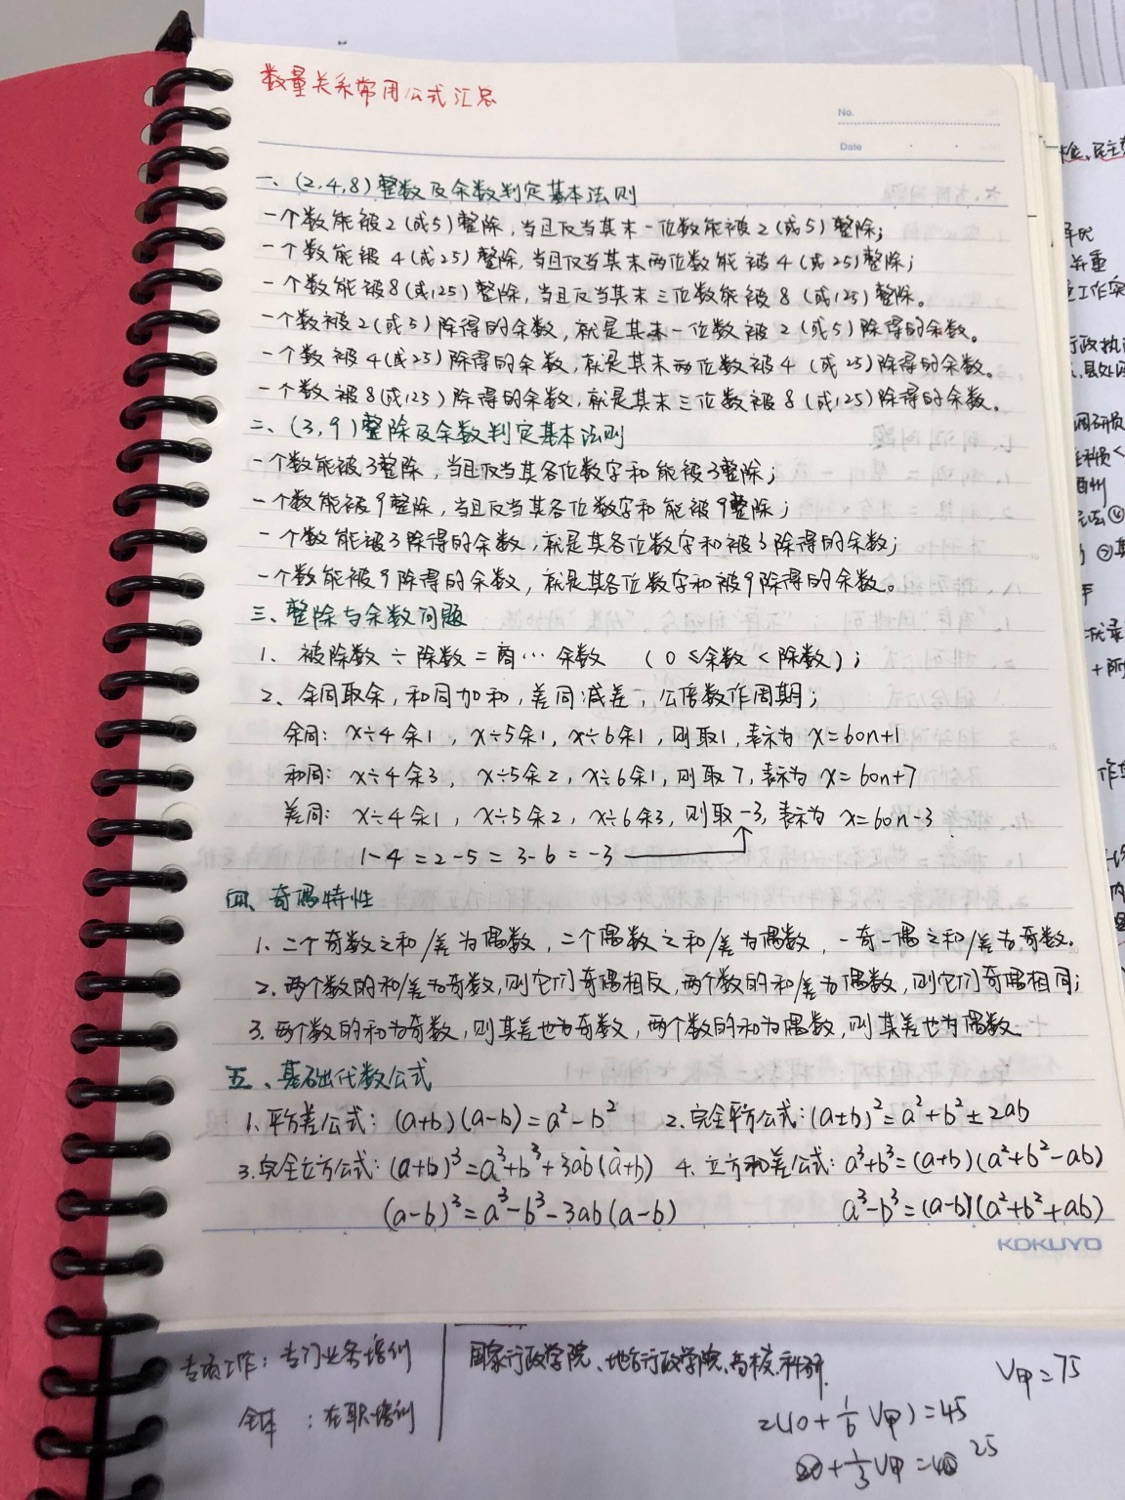 数量关系常用公式汇总
No.
Date
一、(2,4,8)整数及余数判定基本法则
一个数能被2(或5)整除,当且仅当其末一位数能被2(或5)整除;
一个数能被4(或25)整除,当且仅当其末两位数能被4(或25)整除;
一个数能被8(或125)整除,当且仅当其末三位数能被8(或125)整除。
一个数被2(或5)除得的余数,就是其末一位数被2(或5)除得的余数。
一个数被4(或25)除得的余数,就是其末两位数被4(或25)除得的余数。
一个数被8(或125)除得的余数,就是其末三位数被8(或125)除得的余数。
二、(3,9)整除及余数判定基本法则
一个数能被3整除,当且仅当其各位数字和能被3整除;
一个数能被9整除,当且仅当其各位数字和能被9整除;
一个数能被3除得的余数,就是其各位数字和被3除得的余数;
一个数能被9除得的余数,就是其各位数字和被9除得的余数。
三、整除与余数问题
1、被除数÷除数=商…余数 (0≤余数<除数);
2、余同取余,和同加和,差同减差,公倍数作周期;
余同:x÷4余1,x÷5余1,x÷6余1,则取1,表示为x=60n+1
和同:x÷4余3,x÷5余2,x÷6余1,则取7,表示为x=60n+7
差同:x÷4余1,x÷5余2,x÷6余3,则取-3,表示为x=60n-3
1-4=2-5=3-6=-3
四、奇偶特性
1、二个奇数之和/差为偶数,二个偶数之和/差为偶数,一奇一偶之和/差为奇数.
2、两个数的和/差为奇数,则它们奇偶相反,两个数的和/差为偶数,则它们奇偶相同;
3.两个数的和为奇数,则其差也为奇数,两个数的和为偶数,则其差也为偶数.
五、基础代数公式
1、平方差公式:(a+b)(a-b)=a²-b² 2.完全平方公式:(a±b)²=a²+b²±2ab
3.完全立方公式:(a+b)³=a³+b³+3ab(a+b) 4.立方和差公式:a³+b³=(a+b)(a²+b²-ab)
(a-b)³=a³-b³-3ab(a-b) a³-b³=(a-b)(a²+b²+ab)
KOKUYO
专项工作:专门业务培训
国家行政学院、地方行政学院、高校.科研.
全体:在职培训
V甲=75
2(10+1/6V甲)=45
20+1/3V甲=
25